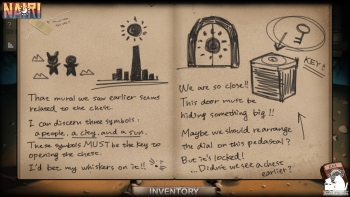 NAIRI
That mural we saw earlier seems
related to the chest.
I can discern three symbols:
a people, a city, and a sun.
These symbols MUST be the key to
opening the chest.
I'd bet my whiskers on it!!
KEY!!
We are so close!!
This door must be
hiding something big!!
Maybe we should rearrange
the dial on this pedestal?
But it's locked!
...Didn't we see a chest
earlier?
INVENTORY